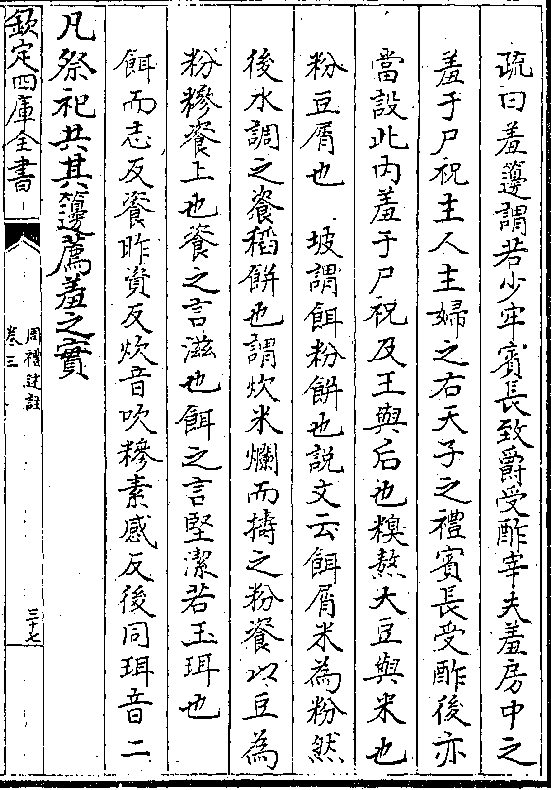 疏曰羞籩謂若少牢賓長致爵受酢宰夫羞房中之
羞于尸祝主人主婦之右天子之禮賓長受酢後亦
當設此内羞于尸祝及王與后也糗熬大豆與米也
粉豆屑也　坡謂餌粉餅也説文云餌屑米為粉然
後水調之餈稻餅也謂炊米爛而擣之粉餈以豆為
粉糝餈上也餈之言滋也餌之言堅潔若玉珥也
餌而志反餈昨資反炊音吹糝素感反後同珥音二
凡祭祀共其籩薦羞之實
欽定四庫全書
周禮述註
卷三
三十七